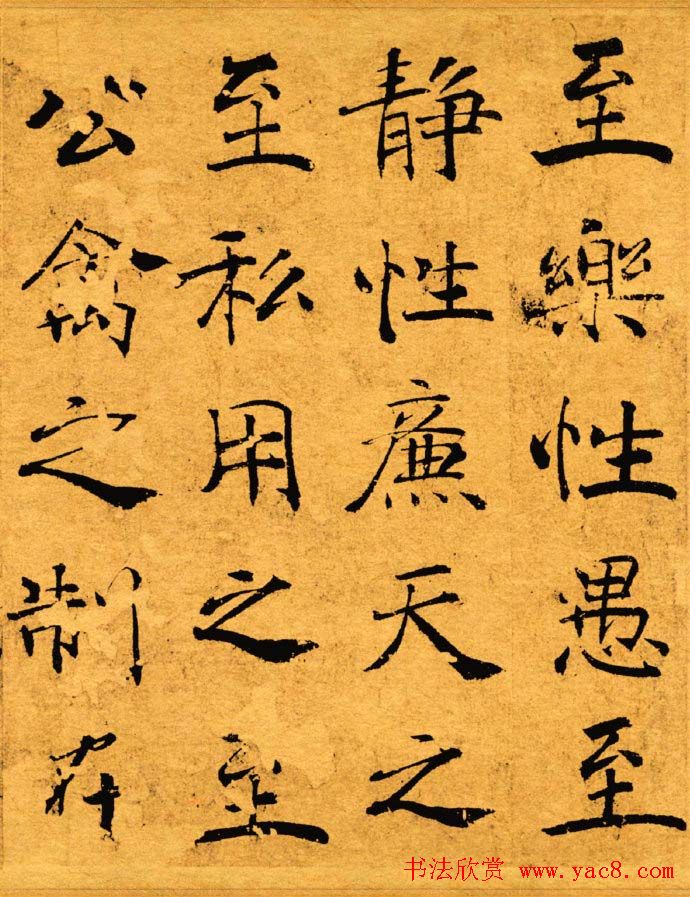 至樂性愚至
静性廉天之
至私用之至
公禽之制
书法欣赏 www.yac8.com